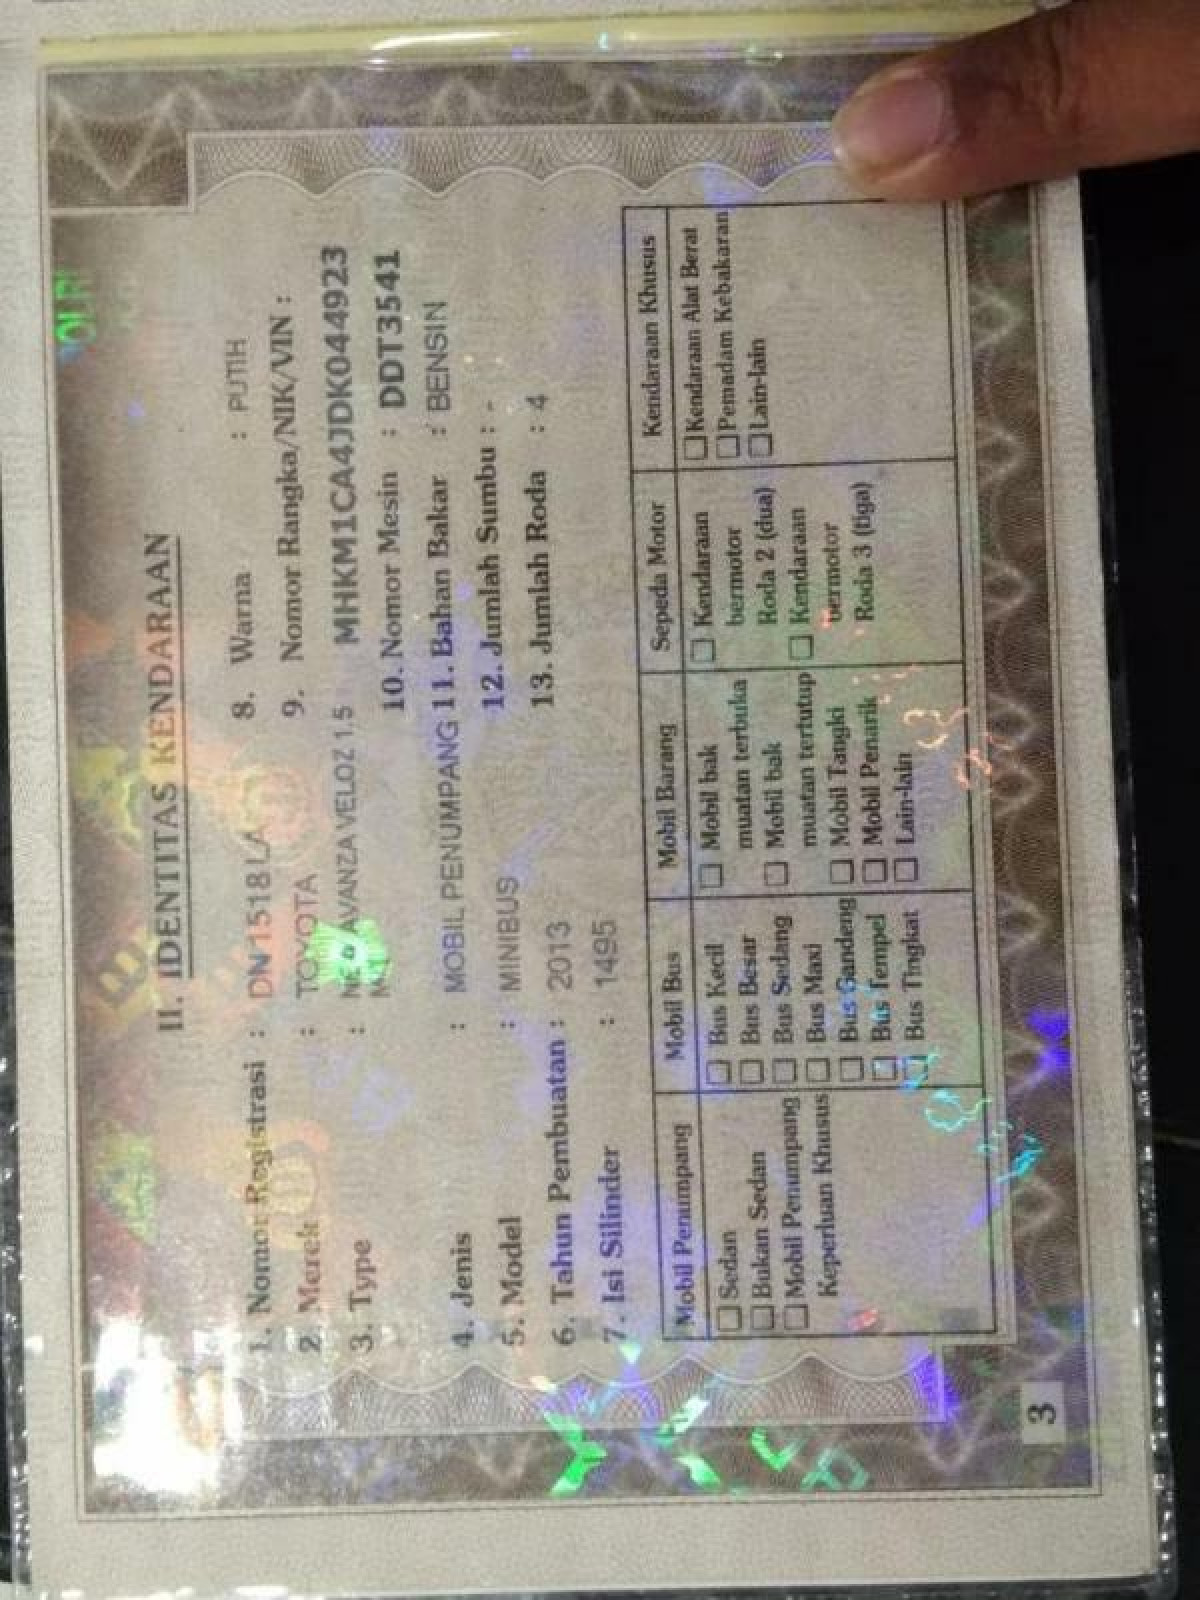 II. IDENTITAS KENDARAAN
1. Nomor Registrasi : DN 1518 LA
2. Merek : TOYOTA
3. Type : AVANZA VELOZ 1.5
4. Jenis : MOBIL PENUMPANG
5. Model : MINIBUS
6. Tahun Pembuatan : 2013
7. Isi Silinder : 1495
8. Warna : PUTIH
9. Nomor Rangka/NIK/VIN :
MHKM1CA4JDK044923
10. Nomor Mesin : DDT3541
11. Bahan Bakar : BENSIN
12. Jumlah Sumbu : -
13. Jumlah Roda : 4
Mobil Penumpang
Sedan
Bukan Sedan
Mobil Penumpang
Keperluan Khusus
Mobil Bus
Bus Kecil
Bus Besar
Bus Sedang
Bus Maxi
Bus Gandeng
Bus Tempel
Bus Tingkat
Mobil Barang
Mobil bak
muatan terbuka
Mobil bak
muatan tertutup
Mobil Tangki
Mobil Penarik
Lain-lain
Sepeda Motor
Kendaraan
bermotor
Roda 2 (dua)
Kendaraan
bermotor
Roda 3 (tiga)
Kendaraan Khusus
Kendaraan Alat Berat
Pemadam Kebakaran
Lain-lain
3